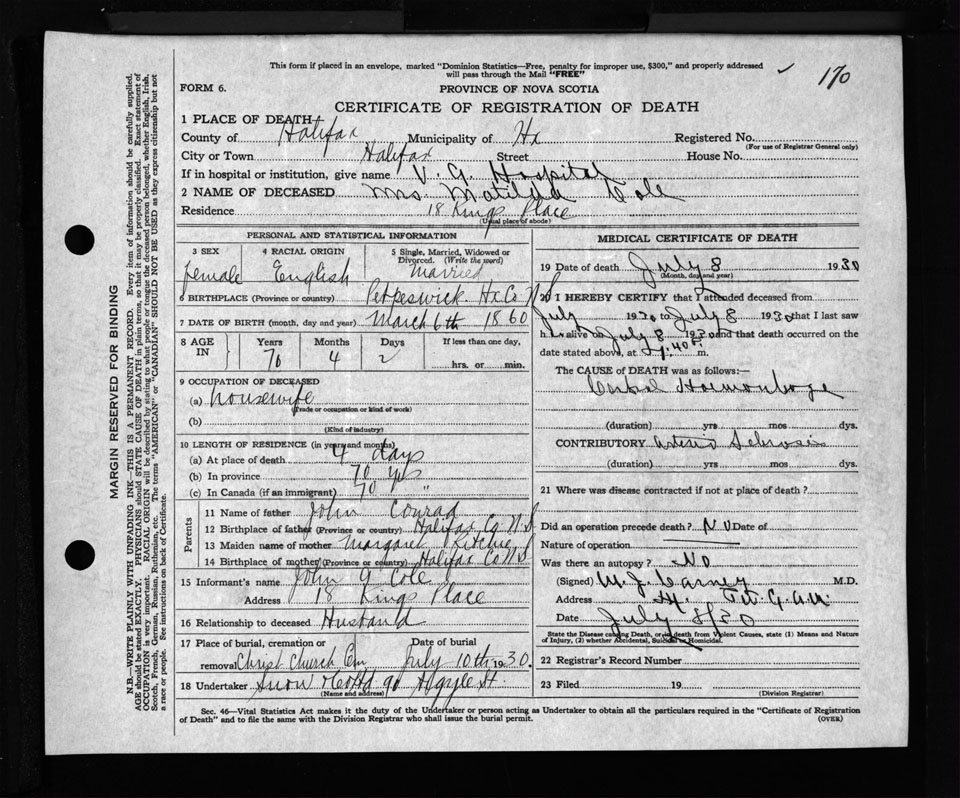 This form if placed in an envelope, marked "Dominion Statistics—Free, penalty for improper use, $300," and properly addressed
will pass through the Mail "FREE"
✓ 170
FORM 6.
PROVINCE OF NOVA SCOTIA
CERTIFICATE OF REGISTRATION OF DEATH
1 PLACE OF DEATH
County of Halifax Municipality of Hx Registered No.
(For use of Registrar General only)
City or Town Halifax Street House No.
If in hospital or institution, give name V. G. Hospital
2 NAME OF DECEASED Mrs. Matilda Cole
Residence 18 Kings Place
(Usual place of abode)
PERSONAL AND STATISTICAL INFORMATION
3 SEX 4 RACIAL ORIGIN 5 Single, Married, Widowed or
Divorced. (Write the word)
female English Married
6 BIRTHPLACE (Province or country) Petpeswick Hx Co N S
7 DATE OF BIRTH (month, day and year) March 6th 1860
8 AGE IN Years Months Days If less than one day,
70 4 2 hrs. or min.
9 OCCUPATION OF DECEASED
(a) housewife
(Trade or occupation or kind of work)
(b)
(Kind of industry)
10 LENGTH OF RESIDENCE (in years and months)
(a) At place of death 4 days
(b) In province 70 yrs
(c) In Canada (if an immigrant) 70 "
Parents
11 Name of father John Conrad
12 Birthplace of father (Province or country) Halifax Co N.S
13 Maiden name of mother Margaret Ritchie
14 Birthplace of mother (Province or country) Halifax Co N S
15 Informant's name John G Cole
Address 18 Kings Place
16 Relationship to deceased Husband
17 Place of burial, cremation or Date of burial
removal Christ Church Cem July 10th 1930.
18 Undertaker Snow & Co Ltd 90 Argyle St.
(Name and address)
MEDICAL CERTIFICATE OF DEATH
19 Date of death July 8 1930
(Month, day and year)
20 I HEREBY CERTIFY that I attended deceased from
July 1930 to July 8 1930 that I last saw
h alive on July 8 1930 and that death occurred on the
date stated above, at m.
The CAUSE of DEATH was as follows:—
Cerebral Haemorrhage
(duration) yrs mos dys.
CONTRIBUTORY Arterio Sclerosis
(duration) yrs mos dys.
21 Where was disease contracted if not at place of death?
Did an operation precede death? No Date of
Nature of operation
Was there an autopsy? No
(Signed) W. J. Carney M.D.
Address
Date July 8/30
State the Disease causing Death, or in death from Violent Causes, state (1) Means and Nature
of Injury, (2) whether Accidental, Suicidal or Homicidal.
22 Registrar's Record Number
23 Filed 19
(Division Registrar)
Sec. 46—Vital Statistics Act makes it the duty of the Undertaker or person acting as Undertaker to obtain all the particulars required in the "Certificate of Registration
of Death" and to file the same with the Division Registrar who shall issue the burial permit.
(OVER)
MARGIN RESERVED FOR BINDING
N.B.—WRITE PLAINLY WITH UNFADING INK—THIS IS A PERMANENT RECORD. Every item of information should be carefully supplied.
AGE should be stated EXACTLY. PHYSICIANS should STATE CAUSE OF DEATH in plain terms, so that it may be properly classified. Exact statement of
OCCUPATION is very important. RACIAL ORIGIN will be described by stating to what people or tongue the deceased person belonged, whether English, Irish,
Scotch, French, German, Russian, Ruthenian, etc. The terms "AMERICAN" or "CANADIAN" SHOULD NOT BE USED as they express citizenship but not
a race or people. See instructions on back of Certificate.